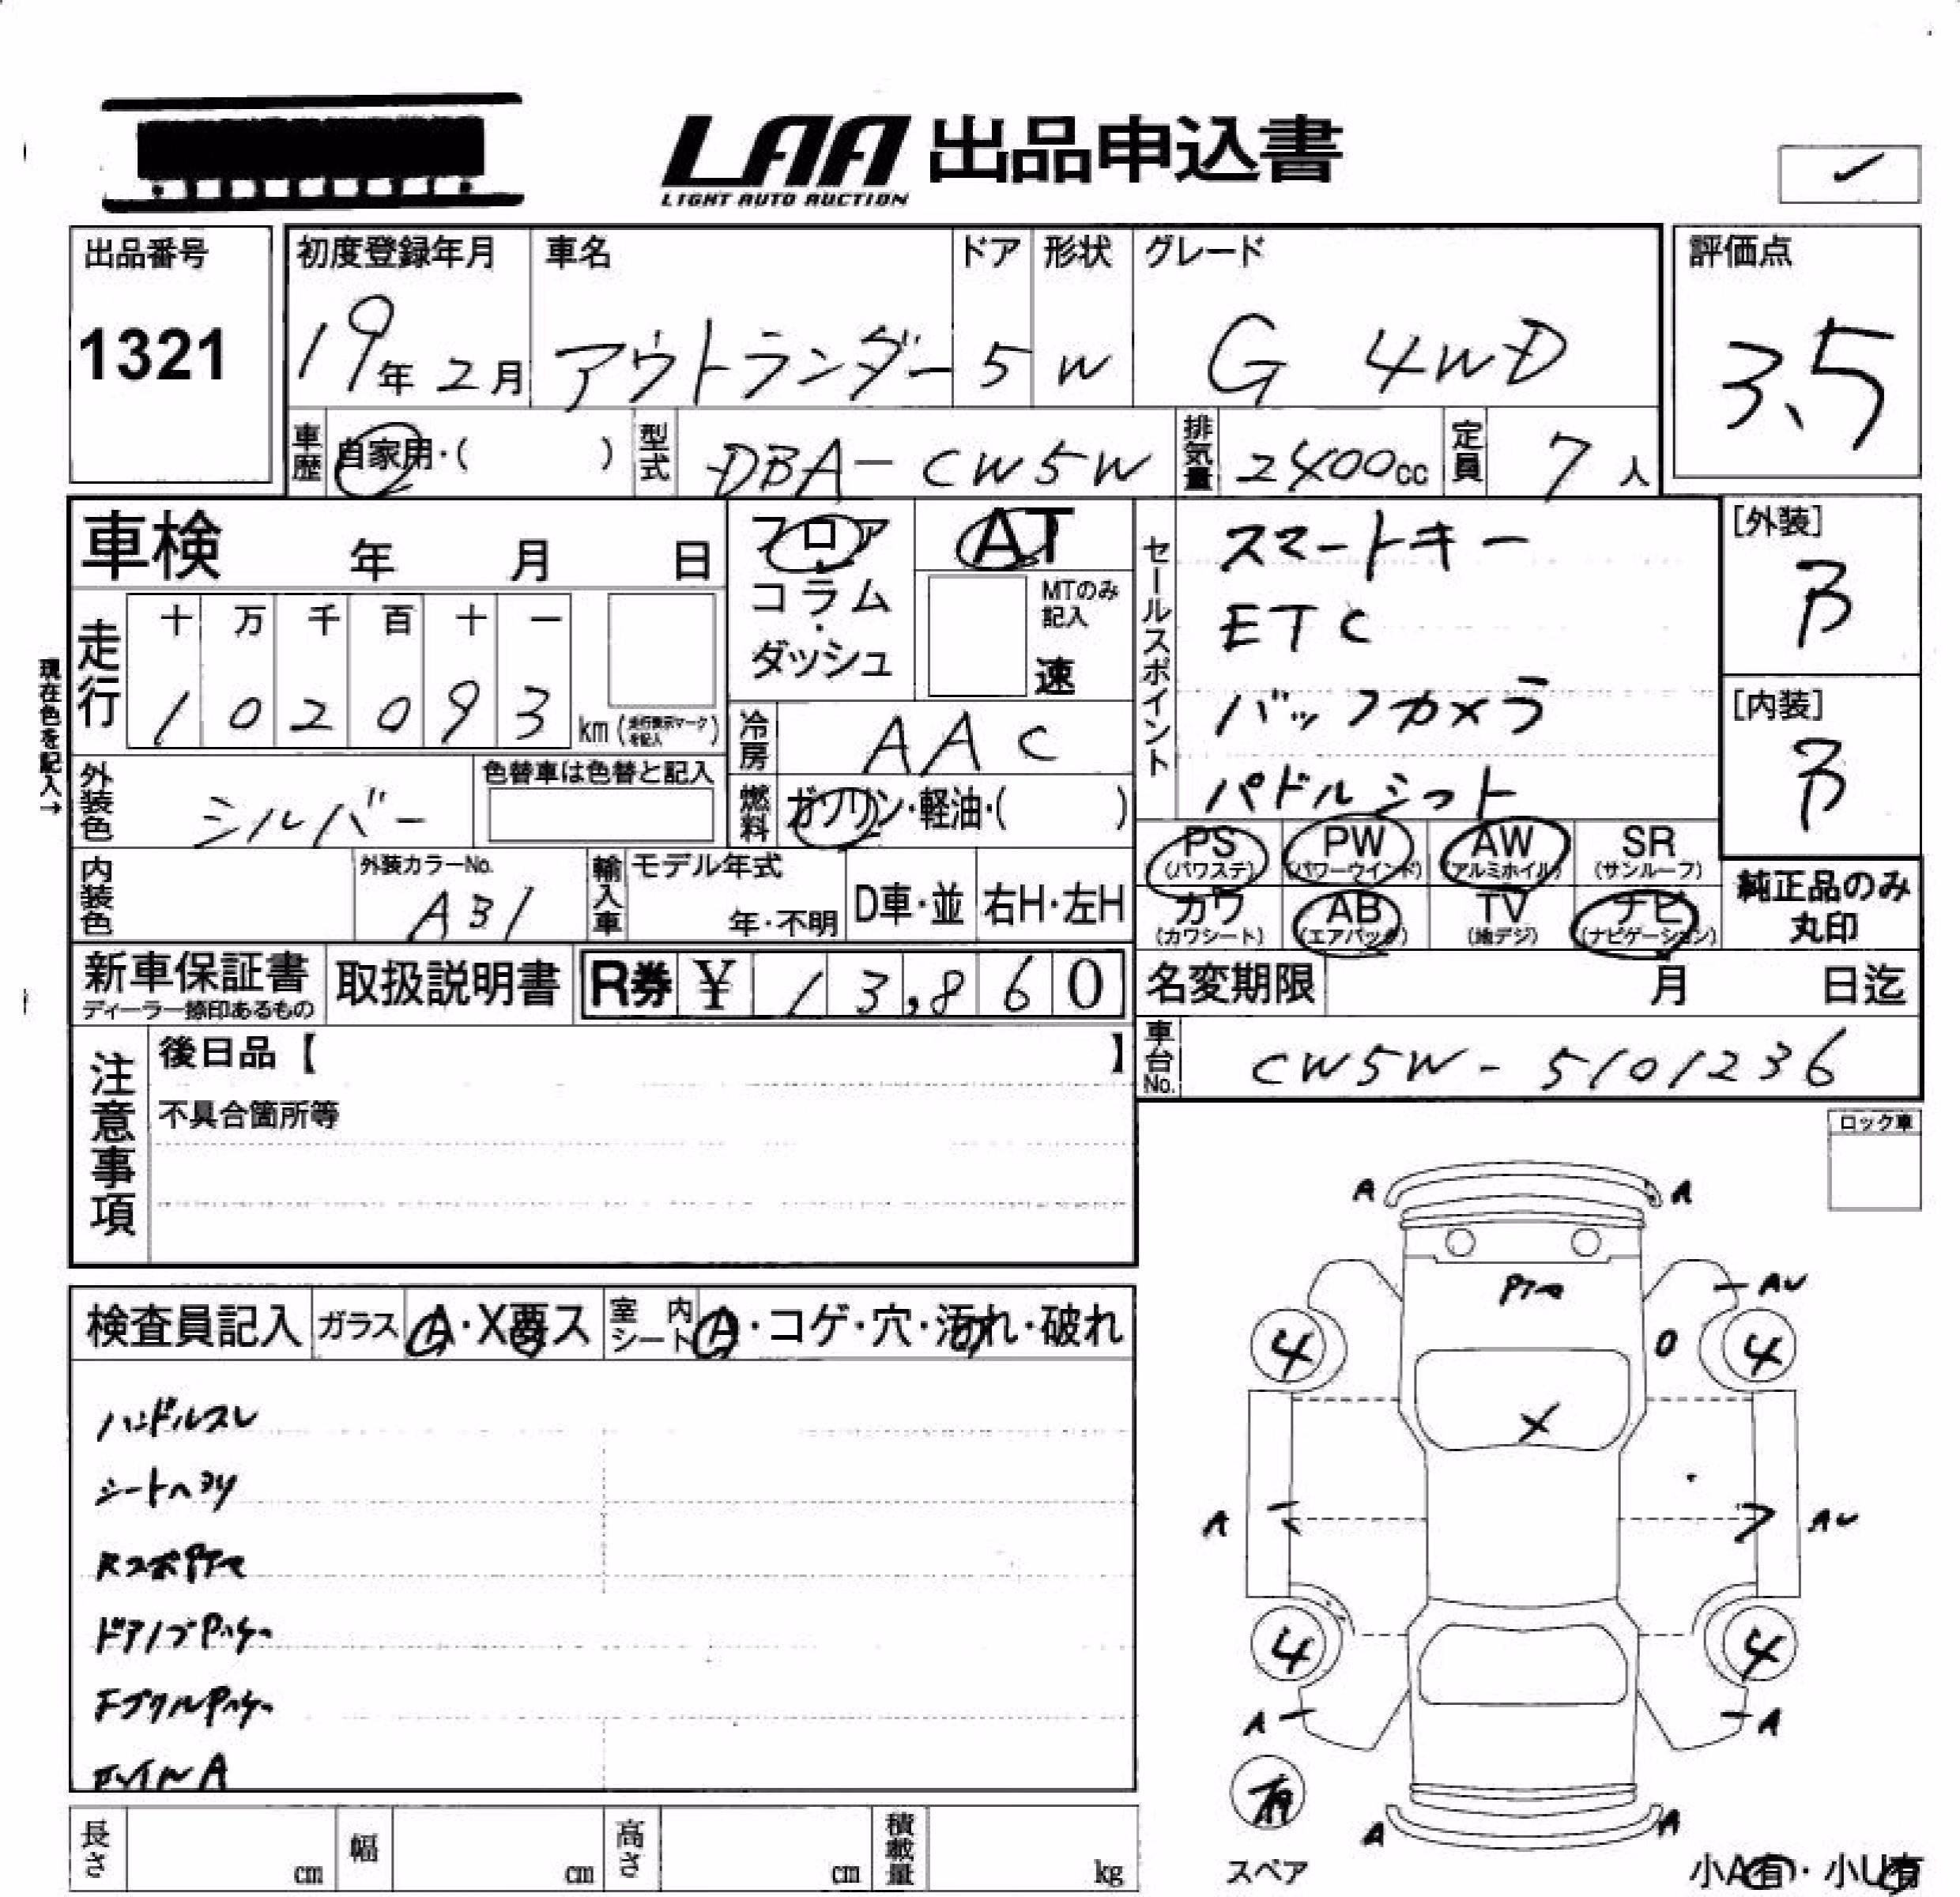 LAA 出品申込書
LIGHT AUTO AUCTION
出品番号 初度登録年月 車名 ドア 形状 グレード 評価点
1321 19年 2月 アウトランダー 5 W G 4WD 3.5
車歴 自家用・( ) 型式 DBA-CW5W 排気量 2400cc 定員 7人
車検 年 月 日 フロア・ AT セールスポイント スマートキー [外装]
コラム・ MTのみ記入 ETC B
ダッシュ 速
走行 十 万 千 百 十 一
1 0 2 0 9 3 km (走行表示マークを記入)
現在色を記入→
バックカメラ [内装]
冷房 AAC B
外装色 シルバー 色替車は色替と記入 燃料 ガソリン・軽油・( ) パドルシフト
PS (パワステ) PW (パワーウインド) AW (アルミホイル) SR (サンルーフ)
内装色 外装カラーNo. A31 輸入車 モデル年式 年・不明 D車・並 右H・左H
カワ (カワシート) AB (エアバッグ) TV (地デジ) ナビ (ナビゲーション) 純正品のみ丸印
新車保証書 ディーラー捺印あるもの 取扱説明書 R券 ¥ 13,860 名変期限 月 日迄
注意事項 後日品【 】 車台No. CW5W-5101236
不具合箇所等
ロック車
検査員記入 ガラス A・X要ス 室内シート A・コゲ・穴・汚れ・破れ
ハンドルスレ
シートヘタリ
ドアノブPハゲ
A A
AU
4 0 4
X
A AU
4 4
A A
有
A A
スペア
小A有・小U有
長さ cm 幅 cm 高さ cm 積載量 kg